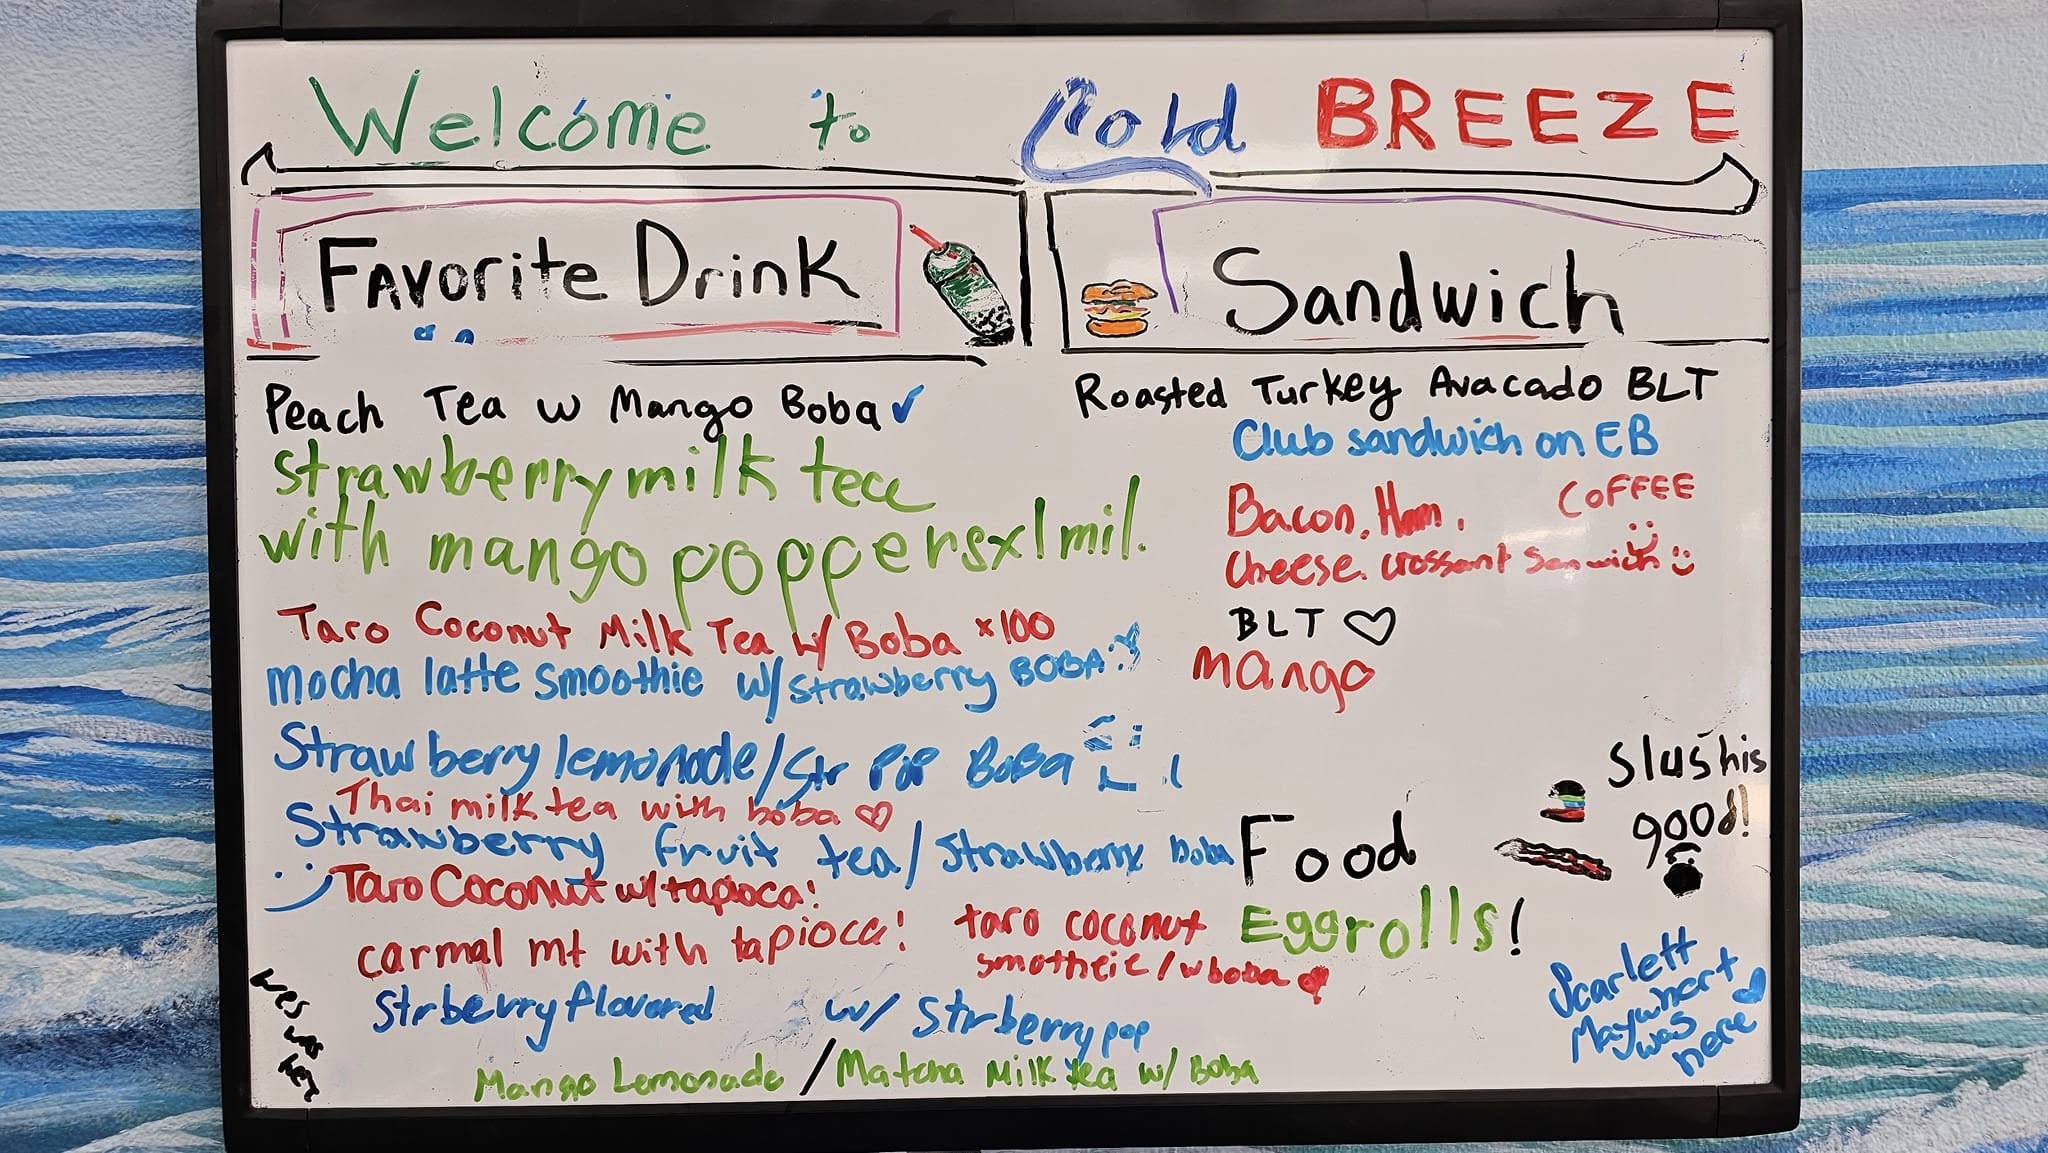 Welcome to Cold BREEZE
FAvorite Drink
Peach Tea w Mango Boba
strawberry milk tea
with mango poppersx1mil.
Taro Coconut Milk Tea w/ Boba x100
mocha latte smoothie w/strawberry BOBA
Strawberry lemonade/Str POP BOBA
Thai milk tea with boba
Strawberry fruit tea/strawberry boba
Taro Coconut w/tapioca!
carmal mt with tapioca!
taro coconut
smotheie/w boba
Strberry flavored w/ Strberry pop
Mango Lemonade / Matcha Milk tea w/ Boba
wes
was
here
Sandwich
Roasted Turkey Avacado BLT
Club sandwich on EB
Bacon, Ham,
COFFEE
Cheese. crossant Sandwich
BLT
mango
Slushis
good!
Food
Eggrolls!
Scarlett
Maywhort
was
here